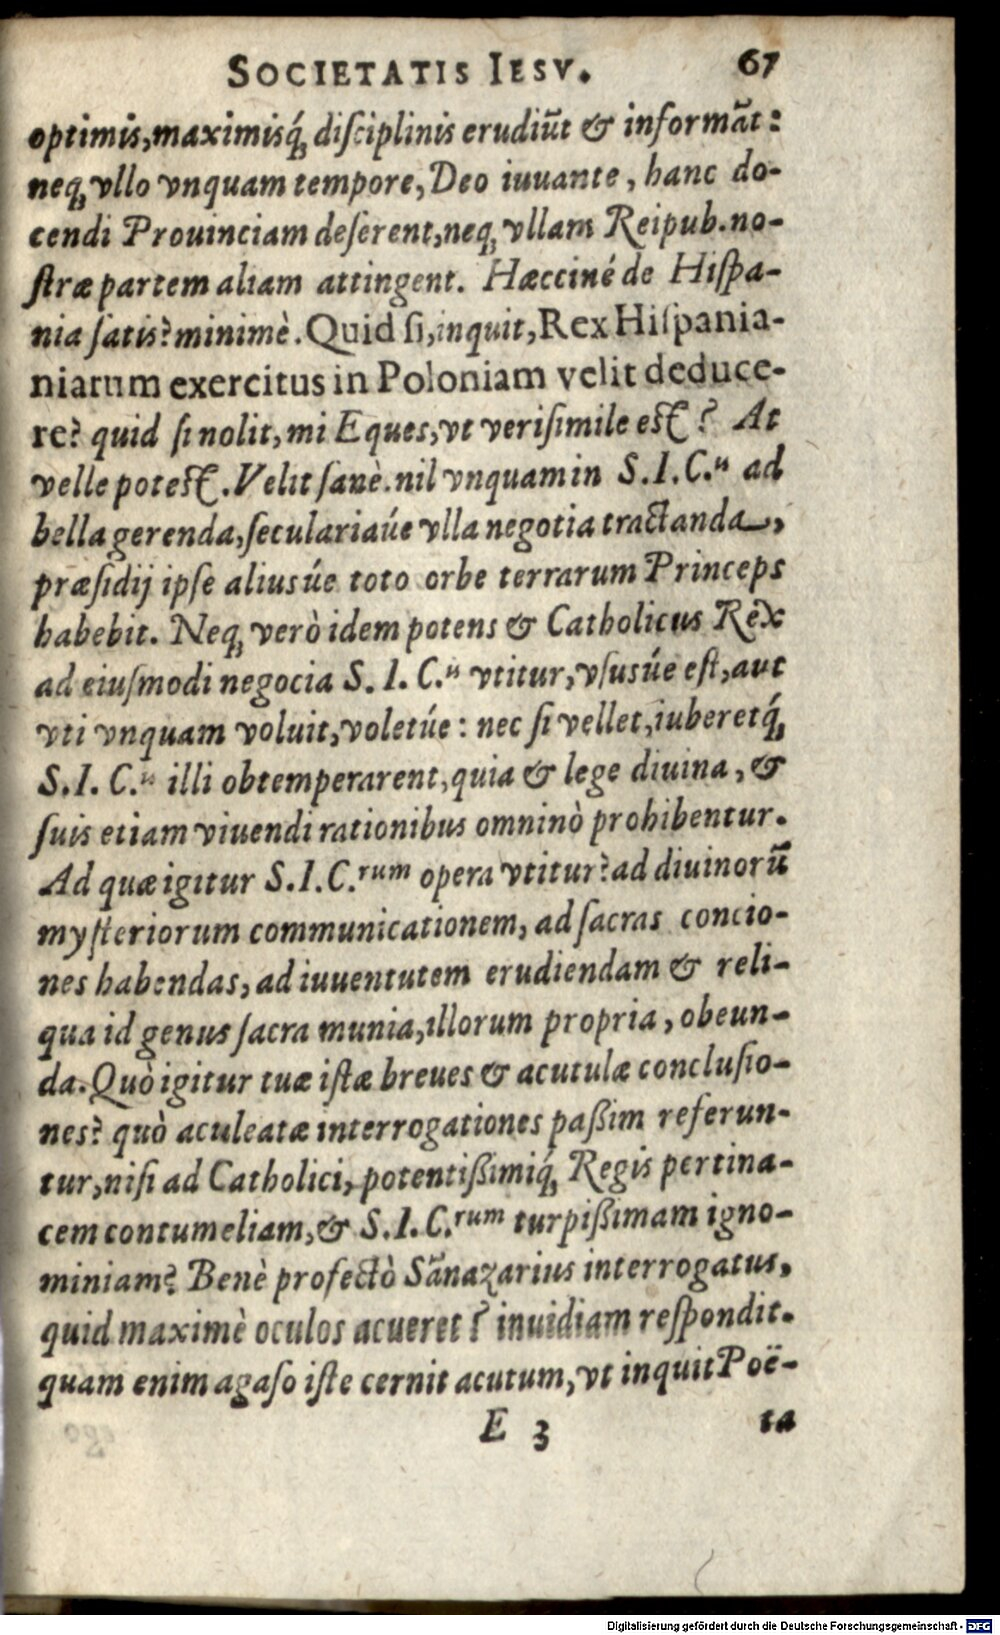 SOCIETATIS IESV. 67
optimis, maximisq́; diſciplinis erudiūt & informāt:
neq; vllo vnquam tempore, Deo iuuante, hanc do-
cendi Prouinciam deſerent, neq; vllam Reipub. no-
ſtræ partem aliam attingent. Hæcciné de Hiſpa-
nia ſatis? minimè. Quid ſi, inquit, Rex Hiſpania-
niarum exercitus in Poloniam velit deduce-
re? quid ſi nolit, mi Eques, vt veriſimile eſt? At
velle poteſt. Velit ſanè. nil vnquam in S. I. C.ıı ad
bella gerenda, ſeculariaúe vlla negotia tractanda,
præſidij ipſe aliusúe toto orbe terrarum Princeps
habebit. Neq; verò idem potens & Catholicus Rex
ad eiuſmodi negocia S. I. C.ıı vtitur, vſusúe eſt, aut
vti vnquam voluit, voletúe: nec ſi vellet, iuberetq́;
S. I. C.ıı illi obtemperarent, quia & lege diuina, &
ſuis etiam viuendi rationibus omninò prohibentur.
Ad quæ igitur S. I. C.rum opera vtitur? ad diuinorū
myſteriorum communicationem, ad ſacras concio-
nes habendas, ad iuuentutem erudiendam & reli-
qua id genus ſacra munia, illorum propria, obeun-
da. Quò igitur tuæ iſtæ breues & acutulæ concluſio-
nes? quò aculeatæ interrogationes paßim referun-
tur, niſi ad Catholici, potentißimiq́; Regis pertina-
cem contumeliam, & S. I. C.rum turpißimam igno-
miniam? Benè profectò Sānazarius interrogatus,
quid maximè oculos acueret? inuidiam reſpondit.
quam enim agaſo iſte cernit acutum, vt inquit Poë-
E 3 ta
Digitalisierung gefördert durch die Deutsche Forschungsgemeinschaft - DFG